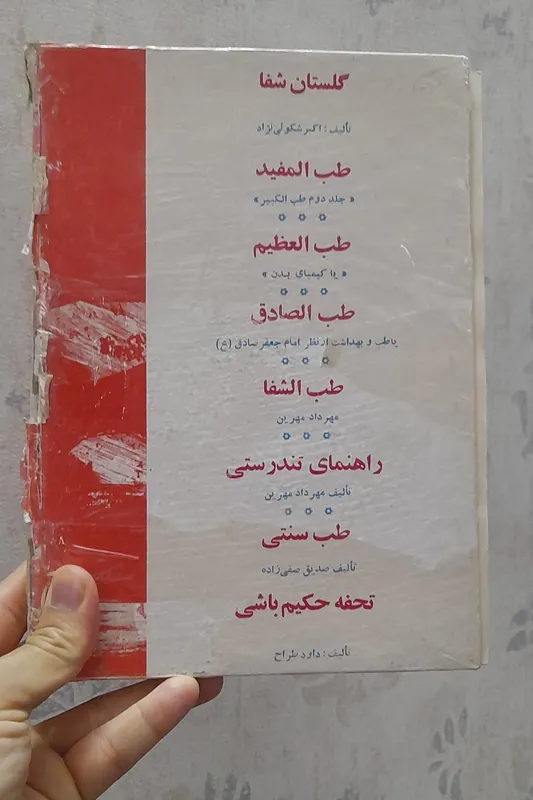 گلستان شفا
تألیف : اکبر شکولی نژاد
طب المفید
« جلد دوم طب الکبیر »
طب العظیم
« یا کیمیای بدن »
طب الصادق
یاطب و بهداشت از نظر امام جعفر صادق (ع)
طب الشفا
مهرداد مهرین
راهنمای تندرستی
تألیف مهرداد مهرین
طب سنتی
تألیف صدیق صفی‌زاده
تحفه حکیم باشی
تألیف : داود طراح